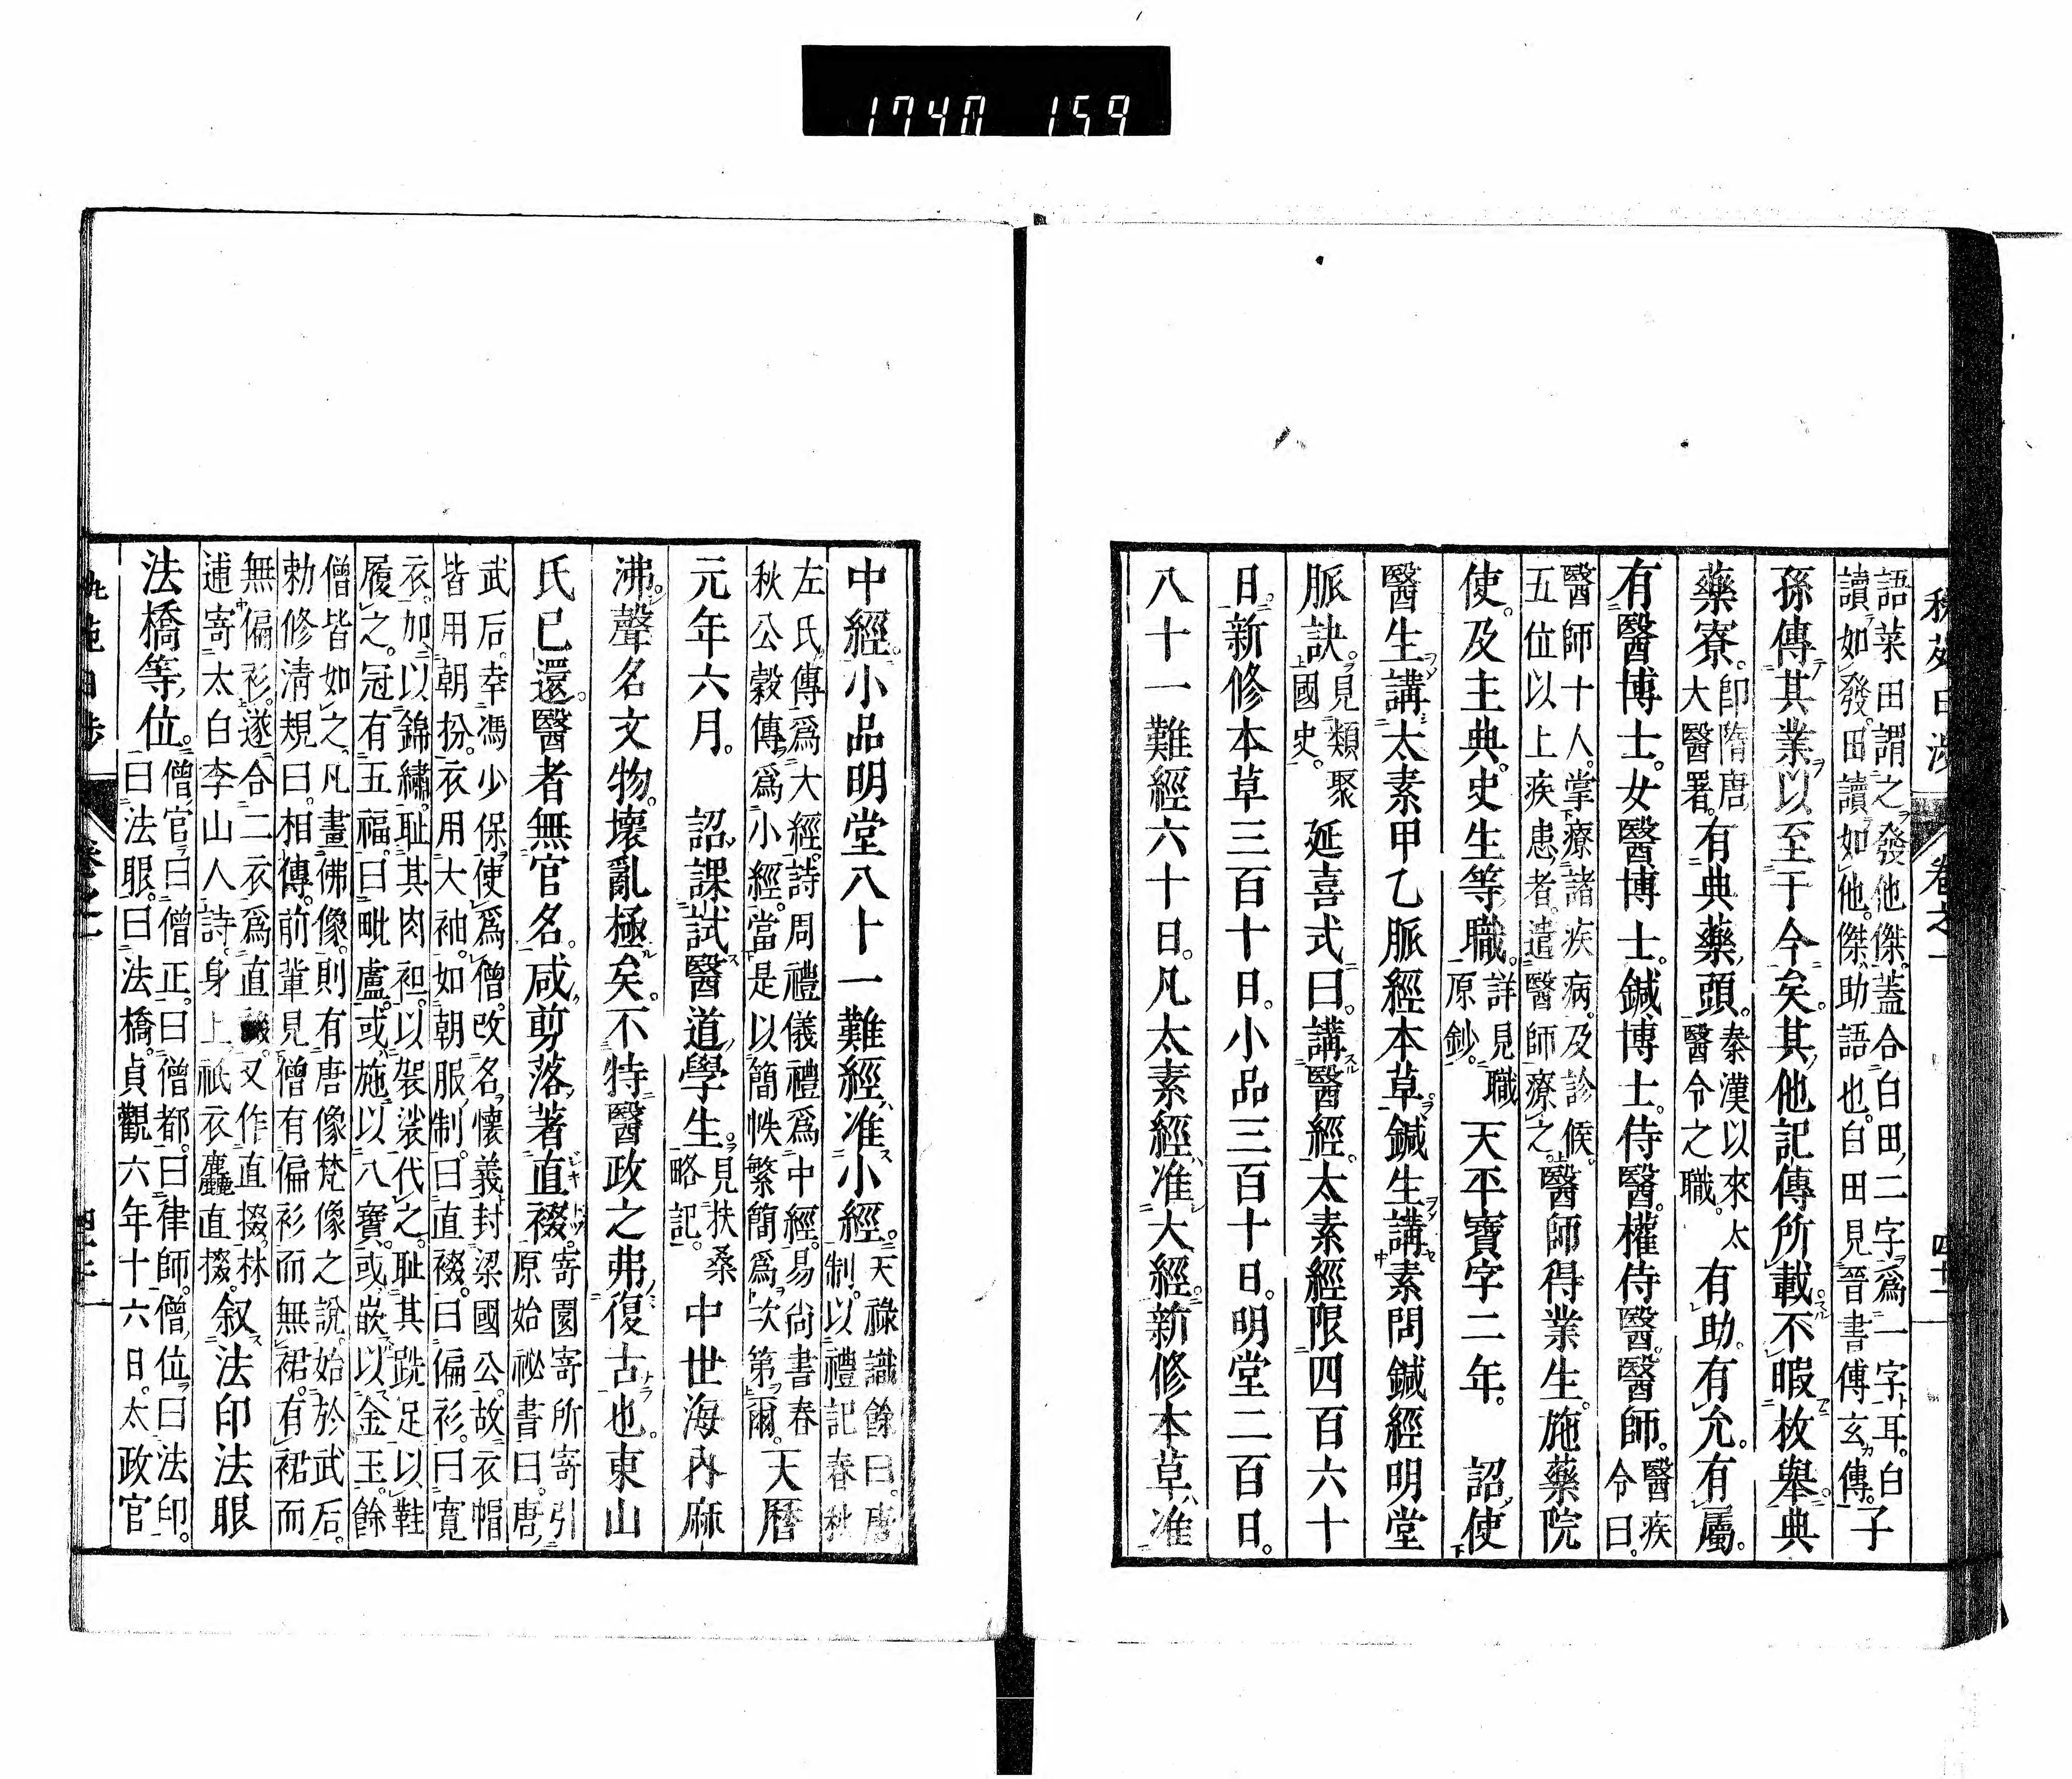 1740 159
秇苑日渉 卷之一 四十一
語菜田謂之發他傑。蓋合白田二字爲一字耳。白
讀如發。田讀如他。傑助語也。白田見晉書傅玄傳。子
孫傳其業。以至于今矣。其他記傳所載不暇枚舉。典
藥寮。卽隋唐
大醫署。有典藥頭。秦漢以來太
醫令之職。有助。有允。有屬。
有醫博士。女醫博士。鍼博士。侍醫。權侍醫。醫師。醫疾
令曰。
醫師十人。掌療諸疾病。及診候。
五位以上疾患者。遣醫師療之。醫師得業生。施藥院
使。及主典。史生等職。詳見職
原鈔。天平寶字二年。 詔使
醫生講太素甲乙脈經本草。鍼生講素問鍼經明堂
脈訣。見類聚
國史。延喜式曰。講醫經。太素經限四百六十
日。新修本草三百十日。小品三百十日。明堂二百日。
八十一難經六十日。凡太素經准大經。新修本草准
中經。小品明堂八十一難經准小經。天祿識餘曰。唐
制。以禮記春秋
左氏傳爲大經。詩周禮儀禮爲中經。易尙書春
秋公穀傳爲小經。當是以簡帙繁簡爲次第爾。天曆
元年六月。 詔課試醫道學生。見扶桑
略記。中世海內麻
沸。聲名文物。壞亂極矣。不特醫政之弗復古也。東山
氏已還。醫者無官名。咸剪落著直裰。寄園寄所寄引
原始祕書曰。唐
武后。幸馮少保使爲僧。改名懷義封梁國公。故衣帽
皆用朝扮。衣用大袖。如朝服制。曰直裰。曰偏衫。曰寬
衣。加以錦繡。耻其肉袒。以袈裟代之。耻其跣足以鞋
履之。冠有五福。曰毗盧。或施以八寶。或嵌以金玉。餘
僧皆如之。凡畫佛像。則有唐像梵像之說。始於武后。
勅修淸規曰。相傳。前輩見僧有偏衫而無裙。有裙而
無偏衫。遂合二衣爲直裰。又作直掇。林
逋寄太白李山人詩。身上祇衣麤直掇。叙法印法眼
法橋等位。僧官曰僧正。曰僧都。曰律師。僧位曰法印。
曰法眼。曰法橋。貞觀六年十六日。太政官
苑日渉 卷之一